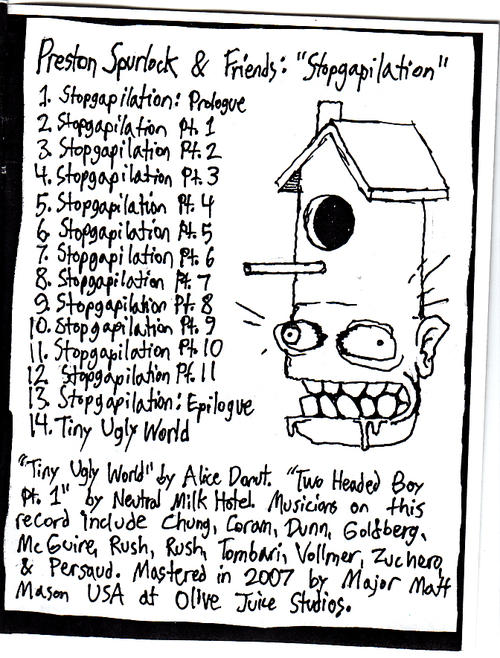 Preston Spurlock & Friends: "Stopgapilation"
1. Stopgapilation: Prologue
2. Stopgapilation Pt. 1
3. Stopgapilation Pt. 2
4. Stopgapilation Pt. 3
5. Stopgapilation Pt. 4
6. Stopgapilation Pt. 5
7. Stopgapilation Pt. 6
8. Stopgapilation Pt. 7
9. Stopgapilation Pt. 8
10. Stopgapilation Pt. 9
11. Stopgapilation Pt. 10
12. Stopgapilation Pt. 11
13. Stopgapilation: Epilogue
14. Tiny Ugly World
"Tiny Ugly World" by Alice Donut. "Two Headed Boy
Pt. 1" by Neutral Milk Hotel. Musicians on this
record include Chung, Coram, Dunn, Goldberg,
McGuire, Rush, Rush, Tombari, Vollmer, Zuchero,
& Persaud. Mastered in 2007 by Major Matt
Mason USA at Olive Juice Studios.